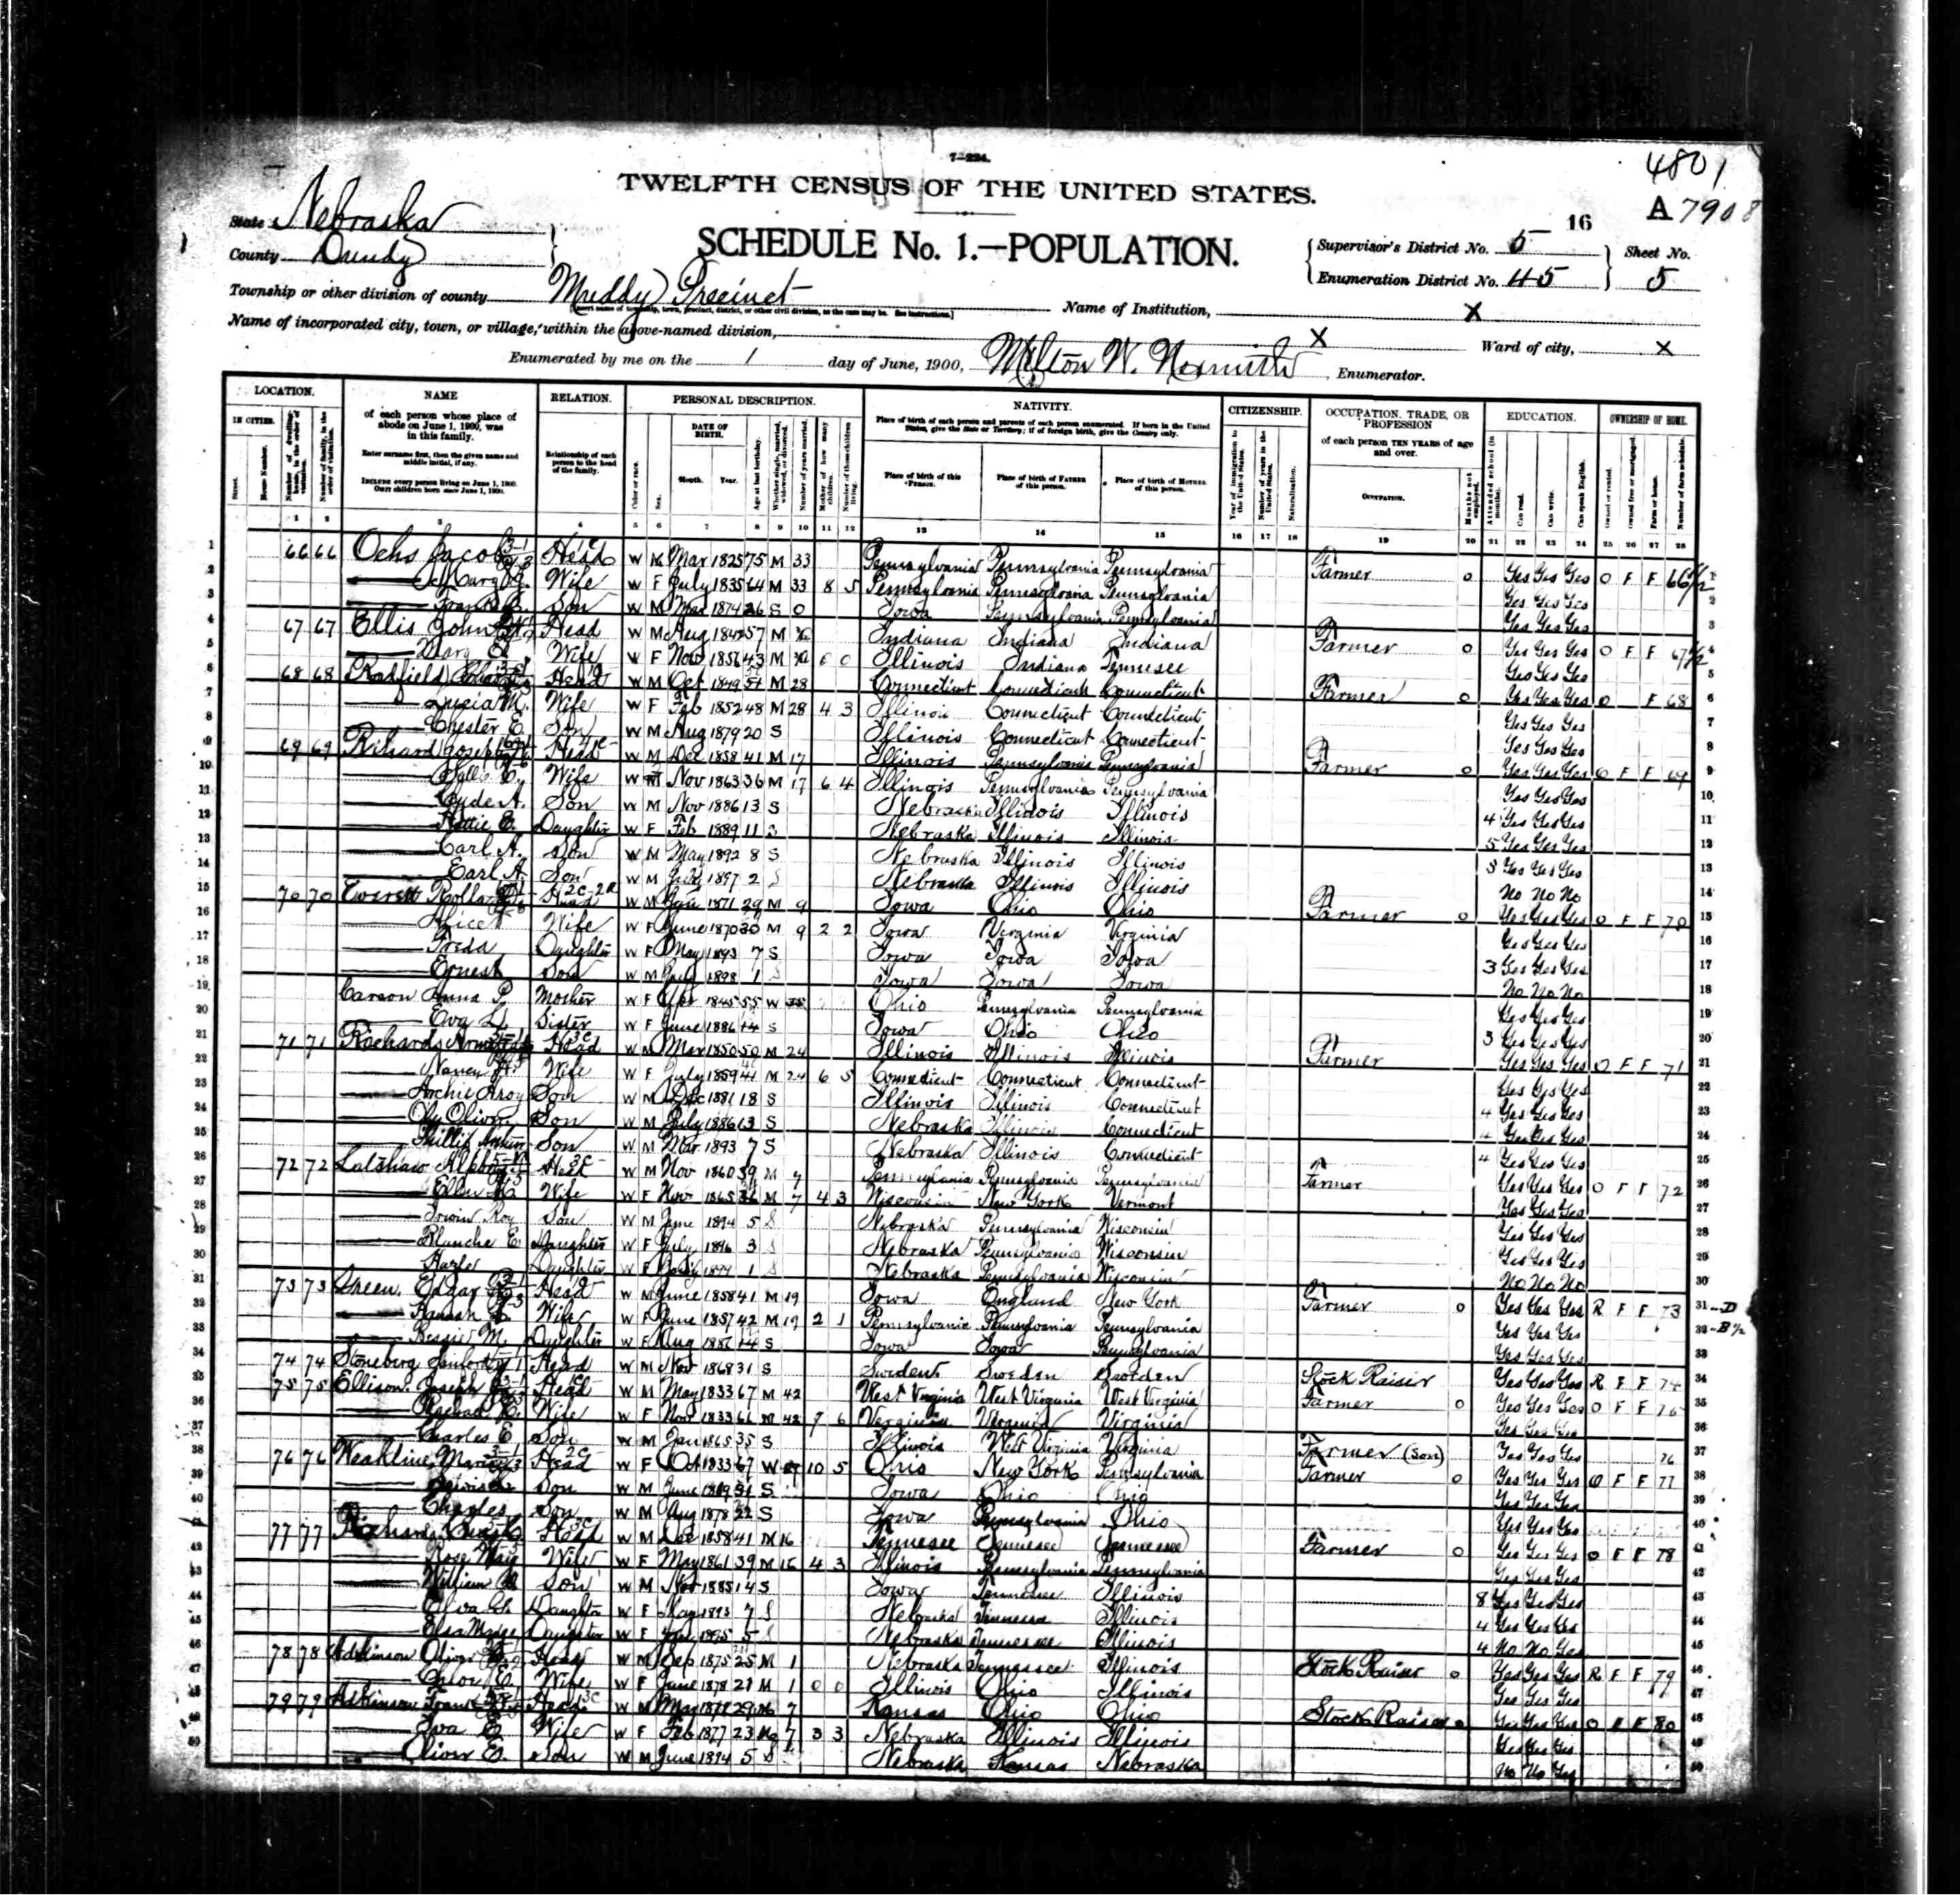 7—224.
4801
TWELFTH CENSUS OF THE UNITED STATES.
A 7908
State Nebraska
16
SCHEDULE No. 1.—POPULATION.
County Dundy
Supervisor's District No. 5
Sheet No.
Enumeration District No. 45
5
Township or other division of county Muddy Precinct
Name of Institution, X
[Insert name of township, town, precinct, district, or other civil division, as the case may be. See instructions.]
Name of incorporated city, town, or village, within the above-named division, X
Ward of city, X
Enumerated by me on the 1 day of June, 1900, Milton W. Nesmith, Enumerator.
LOCATION. NAME RELATION. PERSONAL DESCRIPTION. NATIVITY. CITIZENSHIP. OCCUPATION, TRADE, OR PROFESSION EDUCATION. OWNERSHIP OF HOME.
IN CITIES. of each person whose place of abode on June 1, 1900, was in this family.
Enter surname first, then the given name and middle initial, if any.
INCLUDE every person living on June 1, 1900. OMIT children born since June 1, 1900.
Relationship of each person to the head of the family.
DATE OF BIRTH. Month. Year.
Place of birth of each person and parents of each person enumerated. If born in the United States, give the State or Territory; if of foreign birth, give the Country only.
Place of birth of this PERSON. Place of birth of FATHER of this person. Place of birth of MOTHER of this person.
of each person TEN YEARS of age and over.
OCCUPATION.
1 2 3 4 5 6 7 8 9 10 11 12 13 14 15 16 17 18 19 20 21 22 23 24 25 26 27 28
1 66 66 Ochs Jacob Head W M Mar 1825 75 M 33 Pennsylvania Pennsylvania Pennsylvania Farmer 0 Yes Yes Yes O F F 66
2 Wife W F July 1835 64 M 33 8 5 Pennsylvania Pennsylvania Pennsylvania Yes Yes Yes
3 Son W M Mar 1874 26 S 0 Iowa Pennsylvania Pennsylvania Yes Yes Yes
4 67 67 Ellis John Head W M Aug 57 M Indiana Indiana Indiana Farmer 0 Yes Yes Yes O F F 67
5 Mary Wife W F Nov 1856 43 M 0 Illinois Indiana Tennesee Yes Yes Yes
6 68 68 Head W M Oct 1849 M 28 Connecticut Connecticut Connecticut Farmer 0 Yes Yes Yes O F 68
7 M. Wife W F Feb 1852 48 M 28 4 3 Illinois Connecticut Connecticut Yes Yes Yes
8 Chester E. Son W M Aug 1879 20 S Illinois Connecticut Connecticut Yes Yes Yes
9 69 69 Joseph Head W M Dec 1858 41 M 17 Illinois Pennsylvania Pennsylvania Farmer 0 Yes Yes Yes O F F 69
10 Wife W Nov 1863 36 M 17 6 4 Illinois Pennsylvania Pennsylvania Yes Yes Yes
11 Clyde A. Son W M Nov 1886 13 S Nebraska Illinois Illinois 4 Yes Yes Yes
12 Hattie E. Daughter W F Feb 1889 11 S Nebraska Illinois Illinois 5 Yes Yes Yes
13 Carl A. Son W M May 1892 8 S Nebraska Illinois Illinois Yes Yes Yes
14 Earl A. Son W M July 1897 2 S Nebraska Illinois Illinois No No No
15 70 70 Everett Rolla Head W M Jan 1871 29 M 9 Iowa Ohio Ohio Farmer 0 Yes Yes Yes O F F 70
16 Alice Wife W F June 1870 30 M 9 2 2 Iowa Virginia Virginia Yes Yes Yes
17 Freda Daughter W F May 1893 7 S Iowa Iowa Iowa 3 Yes Yes Yes
18 Ernest Son W M July 1898 1 S Iowa Iowa Iowa No No No
19 Carson Anna P. Mother W F Apr 1845 55 W Ohio Pennsylvania Pennsylvania Yes Yes Yes
20 Eva L. Sister W F June 1886 14 S Iowa Ohio Ohio 3 Yes Yes Yes
21 71 71 Richards Head W M Mar 1850 50 M 24 Illinois Illinois Illinois Farmer Yes Yes Yes O F F 71
22 Nancy Wife W F July 1859 41 M 24 6 5 Connecticut Connecticut Connecticut Yes Yes Yes
23 Archie Son W M Dec 1881 18 S Illinois Illinois Connecticut 4 Yes Yes Yes
24 Oliver Son W M July 1886 13 S Nebraska Illinois Connecticut 4 Yes Yes Yes
25 Phillip Son W M Mar 1893 7 S Nebraska Illinois Connecticut 4 Yes Yes Yes
26 72 72 Latshaw Head W M Nov 1860 39 M 7 Pennsylvania Pennsylvania Pennsylvania Farmer Yes Yes Yes O F F 72
27 Ellen Wife W F Nov 1865 M 7 4 3 Wisconsin New York Vermont Yes Yes Yes
28 Irwin Roy Son W M June 1894 5 S Nebraska Pennsylvania Wisconsin Yes Yes Yes
29 Blanche E Daughter W F July 1896 3 S Nebraska Pennsylvania Wisconsin Yes Yes Yes
30 Hazel Daughter W F 1 S Nebraska Pennsylvania Wisconsin No No No
31 73 73 Green Edgar Head W M June 1858 41 M 19 Iowa England New York Farmer 0 Yes Yes Yes R F F 73
32 Hannah Wife W F June 1857 42 M 19 2 1 Pennsylvania Pennsylvania Pennsylvania Yes Yes Yes
33 Bessie M. Daughter W F Aug 14 S Iowa Iowa Pennsylvania Yes Yes Yes
34 74 74 Stoneberg Head W M Nov 1868 31 S Sweden Sweden Sweden Stock Raiser Yes Yes Yes R F F 74
35 75 75 Ellison Joseph Head W M May 1833 67 M 42 West Virginia West Virginia West Virginia Farmer 0 Yes Yes Yes O F F
36 Wife W F Nov 1833 66 M 42 7 6 Virginia Virginia Virginia Yes Yes Yes
37 Charles E Son W M Jan 1865 35 S Illinois West Virginia Virginia Farmer (Son) Yes Yes Yes 76
38 76 76 Head W F Oct 1833 67 W 10 5 Ohio New York Pennsylvania Farmer 0 Yes Yes Yes O F F 77
39 Son W M June S Iowa Ohio Ohio Yes Yes Yes
40 Charles Son W M Aug 1878 22 S Iowa Pennsylvania Ohio Yes Yes Yes
41 77 77 Head W M Dec 1858 41 M 16 Tennesee Tennesee Tennesee Farmer 0 Yes Yes Yes O F F 78
42 Rose May Wife W F May 1861 39 M 16 4 3 Illinois Pennsylvania Pennsylvania Yes Yes Yes
43 William Son W M Nov 1885 14 S Iowa Tennessee Illinois 8 Yes Yes Yes
44 Daughter W F May 1893 7 S Nebraska Tennessee Illinois 4 Yes Yes Yes
45 Daughter W F 1895 5 S Nebraska Tennessee Illinois 4 No No Yes
46 78 78 Oliver Head W M Sep 1875 25 M 1 Nebraska Tennessee Illinois Stock Raiser 0 Yes Yes Yes R F F 79
47 Wife W F June 1878 21 M 1 0 0 Illinois Ohio Illinois Yes Yes Yes
48 79 79 Frank Head W M May 29 M 7 Kansas Ohio Ohio Stock Raiser Yes Yes Yes O F F 80
49 Iva E. Wife W F Feb 1877 23 M 7 3 3 Nebraska Illinois Illinois Yes Yes Yes
50 Oliver E. Son W M June 1894 5 S Nebraska Kansas Nebraska No No Yes